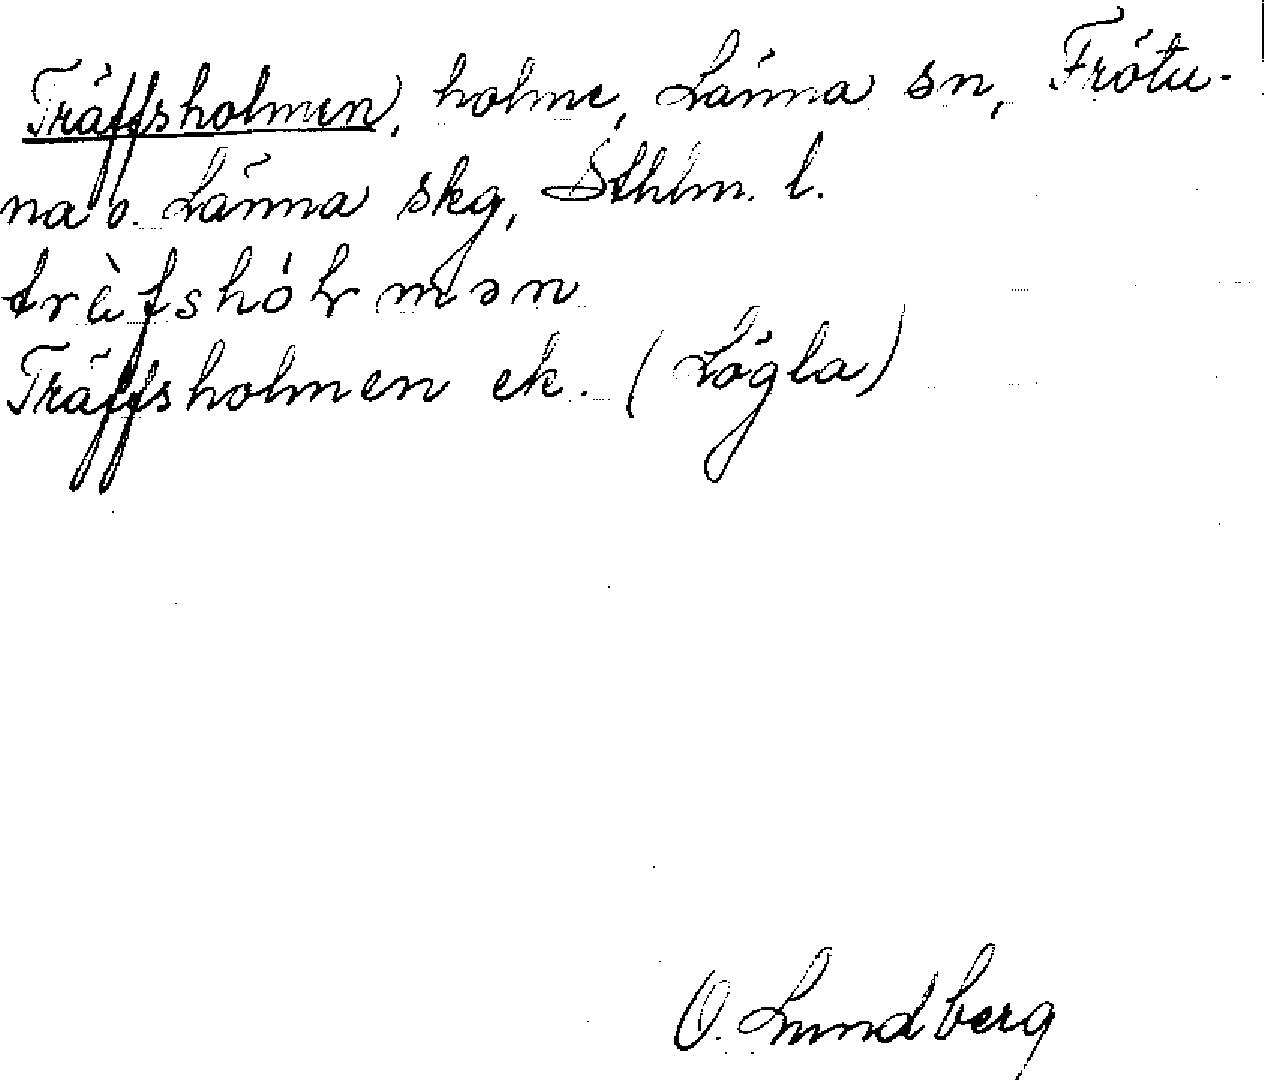 Träffsholmen, holme, Länna sn, Frötu-
na o. Länna skg, Sthlm. l.
trè̀fshól mən
Träffsholmen ek. (Lögla)
O. Lundberg